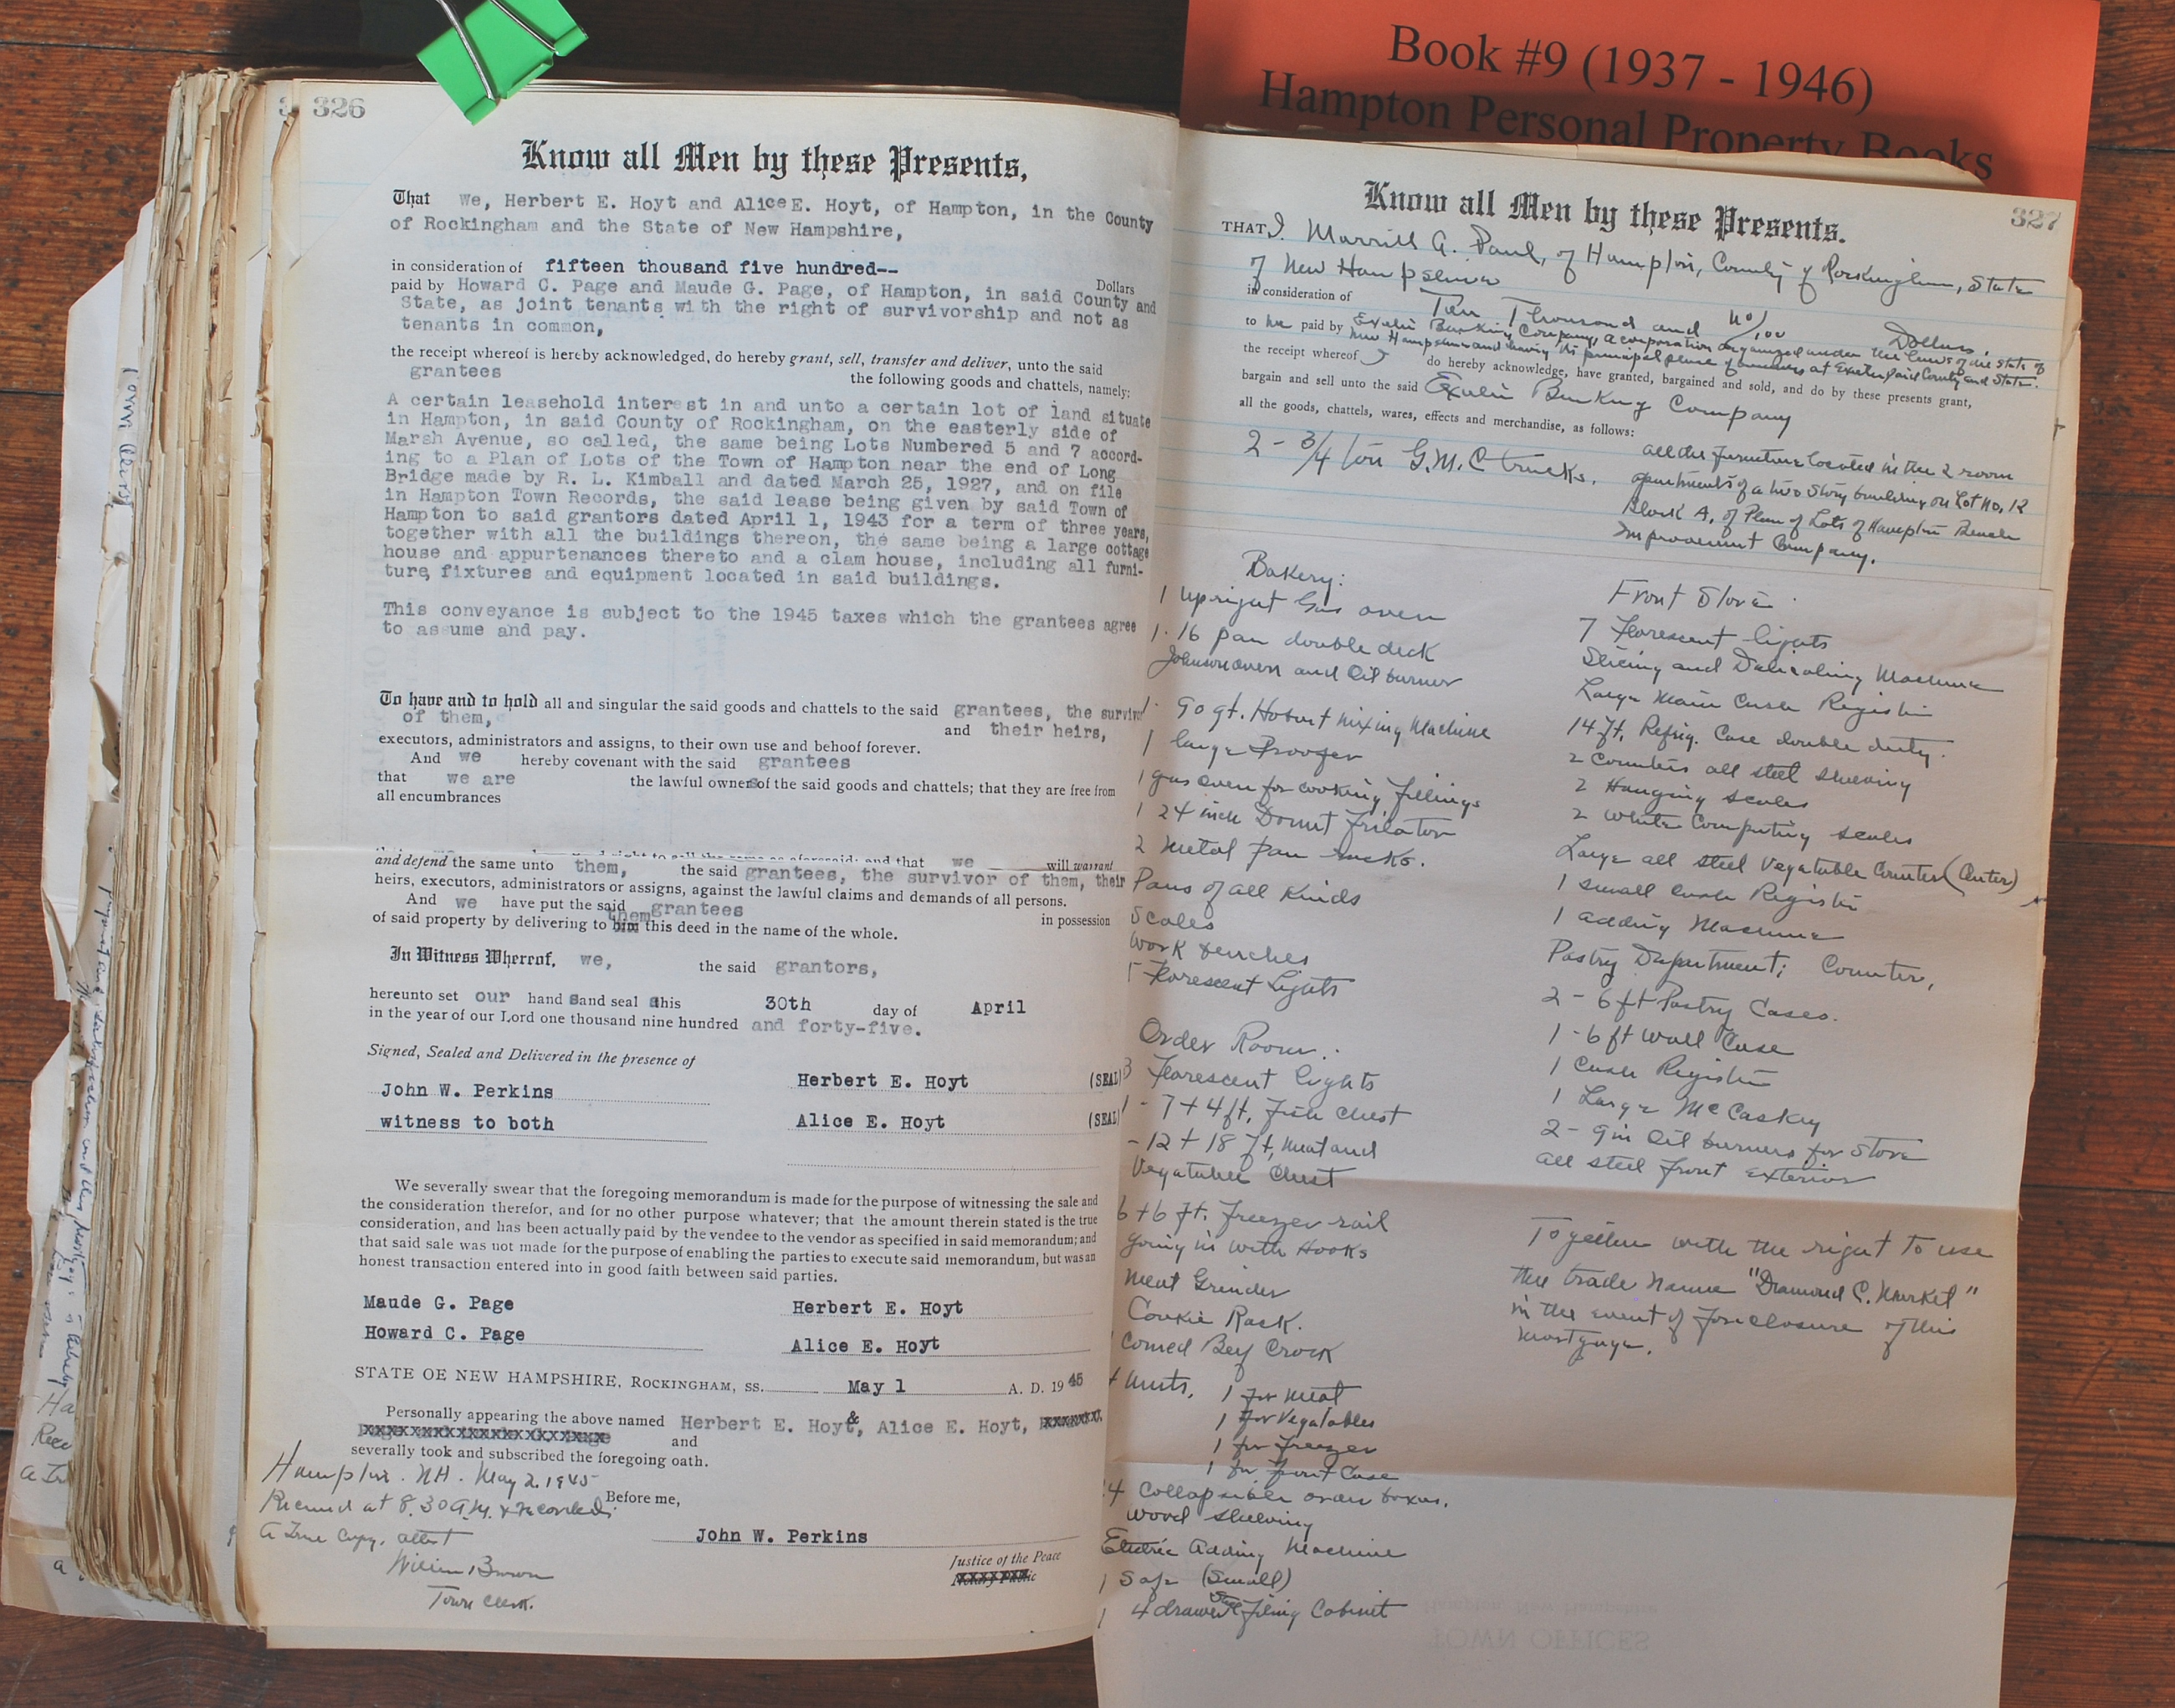 Book #9 (1937 - 1946)
Hampton Personal Property Books
326
Know all Men by these Presents,
That We, Herbert E. Hoyt and Alice E. Hoyt, of Hampton, in the County
of Rockingham and the State of New Hampshire,
in consideration of fifteen thousand five hundred-- Dollars
paid by Howard C. Page and Maude G. Page, of Hampton, in said County and
State, as joint tenants with the right of survivorship and not as
tenants in common,
the receipt whereof is hereby acknowledged, do hereby grant, sell, transfer and deliver, unto the said
grantees the following goods and chattels, namely:
A certain leasehold interest in and unto a certain lot of land situate
in Hampton, in said County of Rockingham, on the easterly side of
Marsh Avenue, so called, the same being Lots Numbered 5 and 7 accord-
ing to a Plan of Lots of the Town of Hampton near the end of Long
Bridge made by R. L. Kimball and dated March 25, 1927, and on file
in Hampton Town Records, the said lease being given by said Town of
Hampton to said grantors dated April 1, 1943 for a term of three years,
together with all the buildings thereon, the same being a large cottage
house and appurtenances thereto and a clam house, including all furni-
ture, fixtures and equipment located in said buildings.
This conveyance is subject to the 1945 taxes which the grantees agree
to assume and pay.
To have and to hold all and singular the said goods and chattels to the said grantees, the survivor
of them, and their heirs,
executors, administrators and assigns, to their own use and behoof forever.
And we hereby covenant with the said grantees
that we are the lawful owners of the said goods and chattels; that they are free from
all encumbrances
right to sell the same as aforesaid; and that we will warrant
and defend the same unto them, the said grantees, the survivor of them, their
heirs, executors, administrators or assigns, against the lawful claims and demands of all persons.
And we have put the said grantees in possession
of said property by delivering to him them this deed in the name of the whole.
In Witness Whereof, we, the said grantors,
hereunto set our hand s and seal s this 30th day of April
in the year of our Lord one thousand nine hundred and forty-five.
Signed, Sealed and Delivered in the presence of
John W. Perkins Herbert E. Hoyt (SEAL)
witness to both Alice E. Hoyt (SEAL)
We severally swear that the foregoing memorandum is made for the purpose of witnessing the sale and
the consideration therefor, and for no other purpose whatever; that the amount therein stated is the true
consideration, and has been actually paid by the vendee to the vendor as specified in said memorandum; and
that said sale was not made for the purpose of enabling the parties to execute said memorandum, but was an
honest transaction entered into in good faith between said parties.
Maude G. Page Herbert E. Hoyt
Howard C. Page Alice E. Hoyt
STATE OE NEW HAMPSHIRE, ROCKINGHAM, SS. May 1 A. D. 1945
Personally appearing the above named Herbert E. Hoyt, & Alice E. Hoyt,
and
severally took and subscribed the foregoing oath.
Hampton. NH. May 2. 1945
Received at 8.30 A.M. & recorded.
Before me,
A True Copy, attest
John W. Perkins
William Brown
Town Clerk.
Justice of the Peace
Notary Public
327
Know all Men by these Presents.
THAT I, Merrill A. Paul, of Hampton, County of Rockingham, State
of New Hampshire
in consideration of Ten Thousand and no/100 Dollars,
to me paid by Exeter Banking Company, a corporation organized under the laws of the State of
New Hampshire and having its principal place of business at Exeter, said County and State.
the receipt whereof I do hereby acknowledge, have granted, bargained and sold, and do by these presents grant,
bargain and sell unto the said Exeter Banking Company
all the goods, chattels, wares, effects and merchandise, as follows:
2 - 3/4 ton G.M.C trucks.
all the furniture located in the 2 room
apartments of a two story building on Lot No. 12
Block A, of Plan of Lots of Hampton Beach
Improvement Company.
Bakery:
1 upright Gas oven
1. 16 pan double deck
Johnson oven and Oil burner
1. 90 qt. Hobart mixing Machine
1 large Proofer
1 gas oven for cooking fillings
1 24 inch Donut frilator
2 metal pan racks.
Pans of all kinds
Scales
Work benches
5 Florescent Lights
Order Room:
3 Florescent lights
1 - 7 + 4 ft, fish chest
- 12 + 18 ft, meat and
Vegatable Chest
6 + 6 ft. freezer rail
going in with Hooks
Meat Grinder
Cookie Rack.
Corned Beef Crock
4 Units, 1 for Meat
1 for Vegatables
1 for freezer
1 for front Case
4 Collapsible order boxes.
Wood shelving
Electric Adding Machine
1 Safe (Small)
1 4 drawer Steel filing Cabinet
Front Store
7 florescent lights
Slicing and Delicating Machine
Large Main Cash Register
14 ft. Refrig. Case double duty.
2 Counters all steel shelving
2 Hanging scales
2 white Computing scales
Large all steel Vegatable Counter (Center)
1 small cash Register
1 adding Machine
Pastry Department; Counter,
2 - 6 ft Pastry Cases.
1 - 6 ft Wall Case
1 Cash Register
1 Large McCaskey
2 - 9 in Oil burners for Store
all steel front exterior
Together with the right to use
the trade name "Diamond C. Market"
in the event of foreclosure of this
mortgage.
TOWN OFFICES
Hampton, New Hampshire